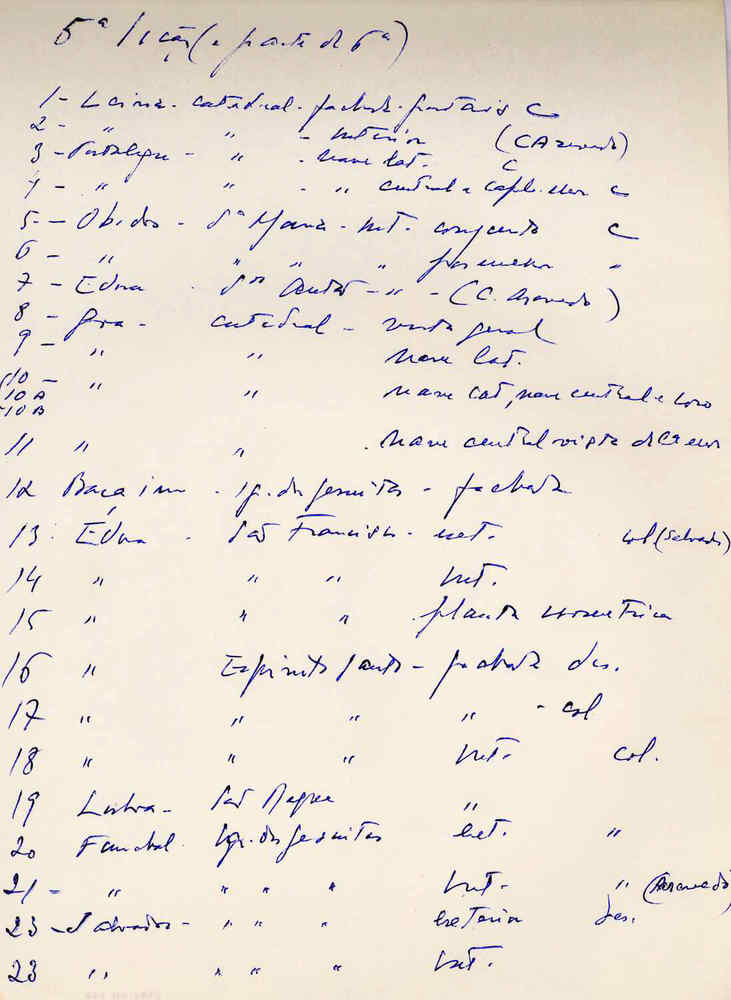 5ª lição (e parte da 6ª)
1 - Leiria - catedral - fachada - frontaria C
2 - " " - interior (C Azevedo)
3 - Portalegre - " - nave lat. C
4 - " " - " central e capl. mor C
5 - Obidos - Sta Maria - int. conjunto C
6 - " " " " pormenor "
7 - Évora - Sto Antão - " - (C. Azevedo)
8 - Goa - catedral - vista geral
9 - " " nave lat.
10 - " "
10 A nave lat, nave central e coro
10 B
11 " " . nave central vista da ca mor
12 Baçaim - ig. dos jesuitas - fachada
13 - Évora - São Francisco - ext. col (Salvado)
14 " " " int.
15 " " " . planta isometrica
16 " Espirito Santo - fachada des.
17 " " " " - col
18 " " " int. col.
19 Lisboa - São Roque "
20 Funchal - Igr. dos jesuitas ext. "
21 - " " " " int. " (Azevedo)
23 - Salvador - " " " exterior des.
23 " " " " int.